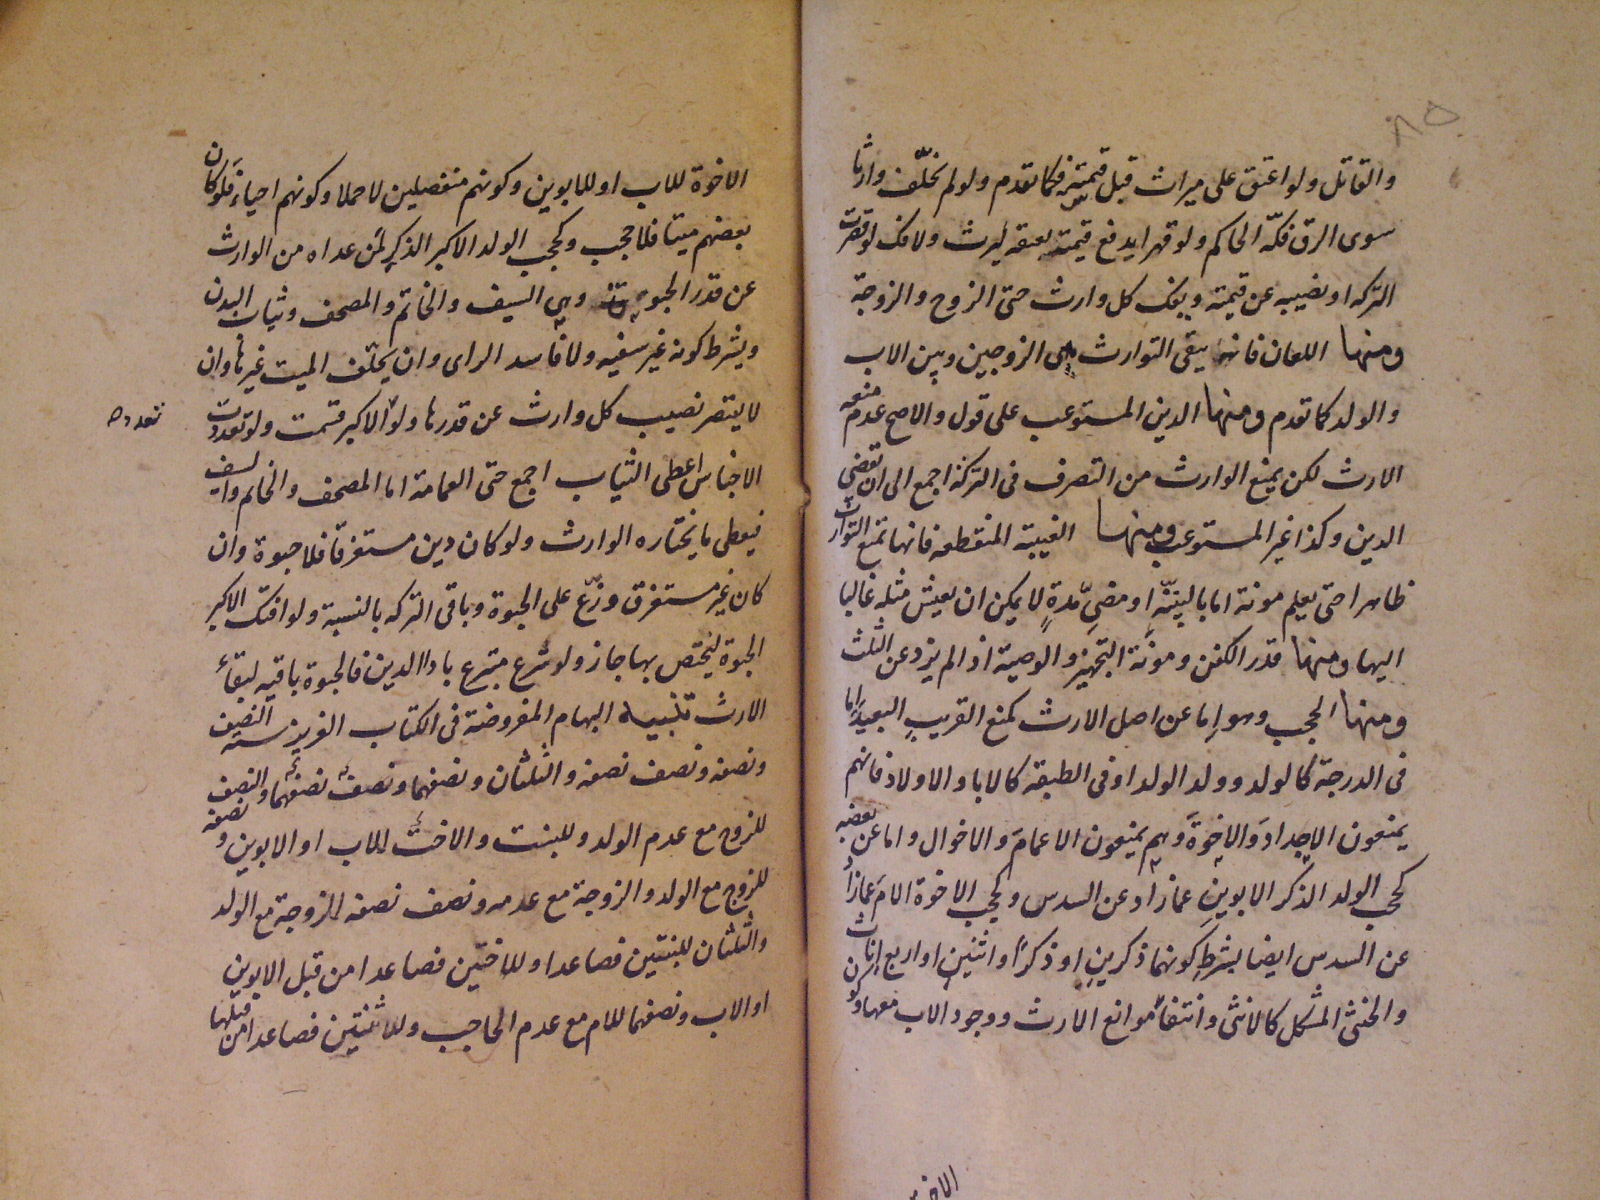 ٨٥
والقاتل ولو اعتق على ميراث قبل قيمته فكما تقدم ولو لم يخلّف وارثا
سوى الرق فكّه الحاكم ولو قهرا بدفع قيمته بعتقه ليرث ولا فك لو قصرت
التركه او نصيبه عن قيمته ويفك كل وارث حتى الزوج والزوجة
ومنها اللعان فانه يبقى التوارث بين الزوجين وبين الاب
والولد كما تقدم ومنها الدين المستوعب على قول والاصح عدم منعه
الارث لكن يمنع الوارث من التصرف فى التركة اجمع الى ان تقضى
الدين وكذا غير المستوعب ومنها الغيبة المنقطعه فانها تمنع التوارث
ظاهرا حتى يعلم موته اما بالبيّنة او مضىِّ مدةٍ لا يمكن ان يعيش مثله غالبا
اليها ومنها قدر الكفن ومونة التجهيز والوصية اذا لم يزد عن الثلث
ومنها الحجب وهو اما عن اصل الارث كمنع القريب البعيد اما
فى الدرجة كالولد وولد الولد او فى الطبقه كالابا والاولاد فانهم
يمنعون الاجدادَ والاخوةَ وهم يمنعون الاعمامَ والاخوال واما عن بعضه
كحجب الولد الذكر الابوين عما زاد عن السدس وكحجب الاخوة الام عما زاد
عن السدس ايضا بشرط كونهما ذكرين او ذكرًا واثنين او اربع إناث
والخنثى المشكل كالانثى وانتفاء موانع الارث ووجود الاب معها وكون
الاخوة للاب او للابوين وكونهم منفصلين لا حملا وكونهم احياء فلو كان
بعضهم ميتا فلا حجب وكحجب الولد الاكبر الذكر لمن عداه من الوارث
عن قدر الحبوة وهى السيف والخاتم والمصحف وثياب البدن
ويشرط كونه غير سفيه ولا فاسد الراى وان يخلّف الميت غيرها وان
لا يقصر نصيب كل وارث عن قدرها ولو الاكبر قسمت ولو تعددت
تعدده
الاجناس اعطى الثياب اجمع حتى العمامة اما المصحف والخاتم والسيف
فيعطى ما يختاره الوارث ولو كان دين مستغرقا فلا حبوة وان
كان غير مستغرق وزّع على الحبوة وباقى التركه بالنسبة ولو افتك الاكبر
الحبوة ليختص بها جاز ولو تبرع متبرع باداالدين فالحبوة باقيه لبقاء
الارث تنبيه السهام المفروضة فى الكتاب العزيز ستة النصف
ونصفه ونصف نصفه والثلثان ونصفهما ونصف نصفهما والنصف
للزوج مع عدم الولد وللبنت والاخت للاب او الابوين ونصفه
للزوج مع الولد والزوجة مع عدمه ونصف نصفه للزوجة مع الولد
والثلثان للبنتين فصاعدا وللاختين فصاعدا من قبل الابوين
او الاب ونصفهما للام مع عدم الحاجب وللاثنتين فصاعدا من قبلها